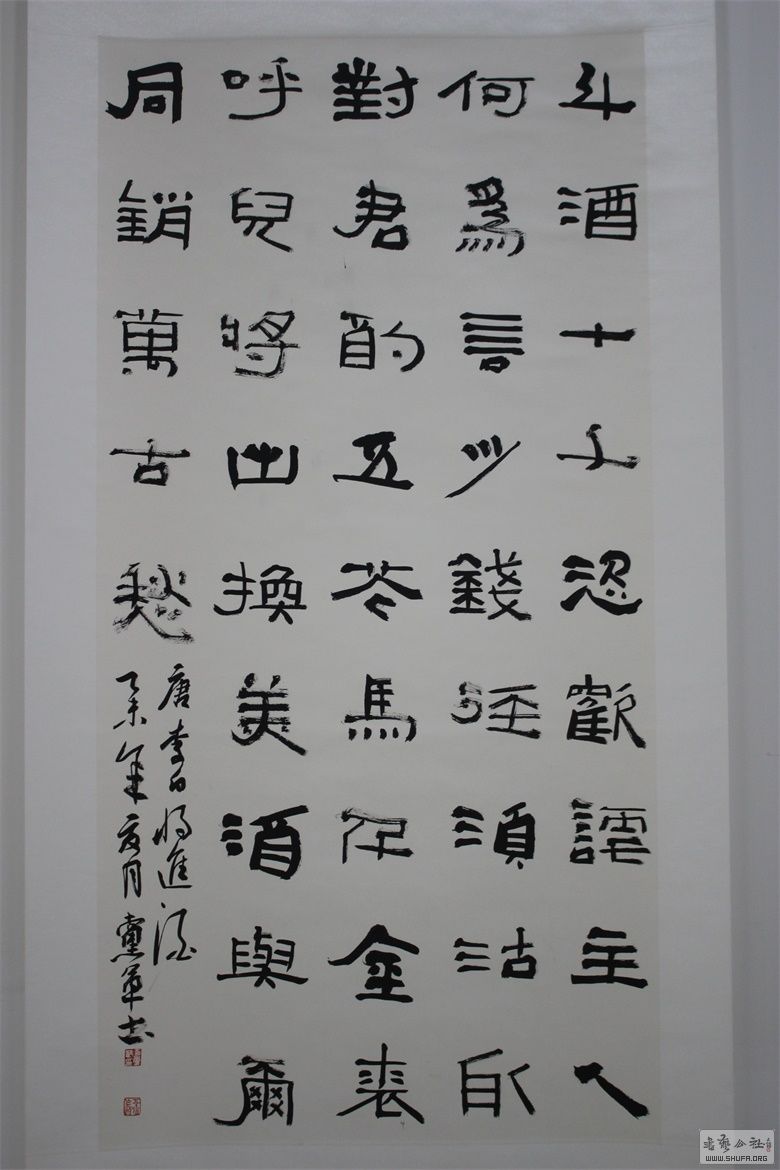 斗酒十千恣歡謔主人
何爲言少錢徑須沽取
對君酌五花馬千金裘
呼兒將出換美酒與爾
同銷萬古愁
唐李白将進酒
乙未年夏月
WWW.SHUFA.ORG